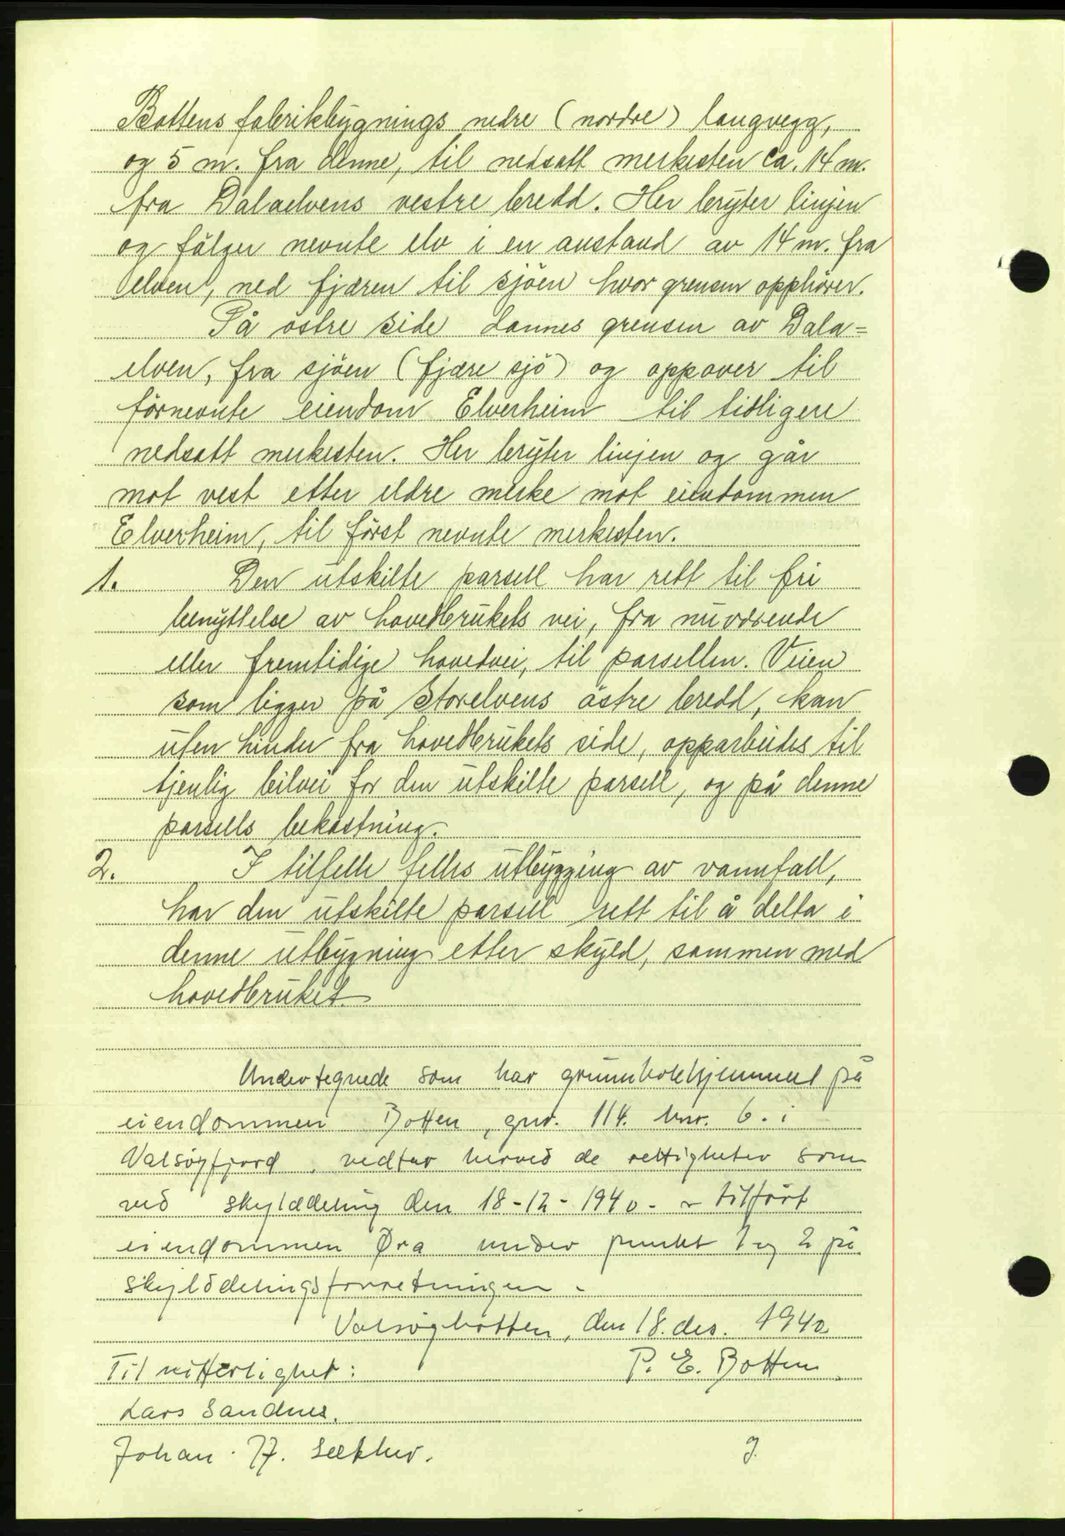 Bottens fabrikbygnings nedre (nordre) langvegg,
og 5 m. fra denne, til nedsatt merkesten ca. 14 m.
fra Dalaelvens vestre bredd. Her bryter linjen
og følger nevnte elv i en avstand av 14 m. fra
elven, ned fjæren til sjöen hvor grensen opphörer.
På östre side dannes grensen av Dala=
elven, fra sjöen (fjære sjö) og oppover til
förnevnte eiendom Elverheim til tidligere
nedsatt merkesten. Her bryter linjen og går
mot vest etter eldre merke mot eiendommen
Elverheim, til först nevnte merkesten.
1. Den utskilte parsell har rett til fri
benyttelse av hovedbrukets vei, fra nuværende
eller fremtidige hovedvei, til parsellen. Veien
som ligger på Storelvens östre bredd, kan
uten hinder fra hovedbrukets side, opparbeides til
tjenlig bilvei for den utskilte parsell, og på denne
parsells bekostning.
2. I tilfelle felles utbygging av vannfall,
har den utskilte parsell rett til å delta i
denne utbygning etter skyld, sammen med
hovedbruket
Undertegnede som har grunnbokhjemmel på
eiendommen Botten, gnr. 114. bnr. 6. i
Valsöyfjord, vedtar herved de rettigheter som
ved skylddeling den 18-12-1940 - er tilfört
eiendommen Øra under punkt 1 og 2 på
skylddelingsforretningen.
Valsöybotten, den 18. des. 1940
Til vitterlighet: P. E. Botten.
Lars Sandnes.
Johan H. Sæther.